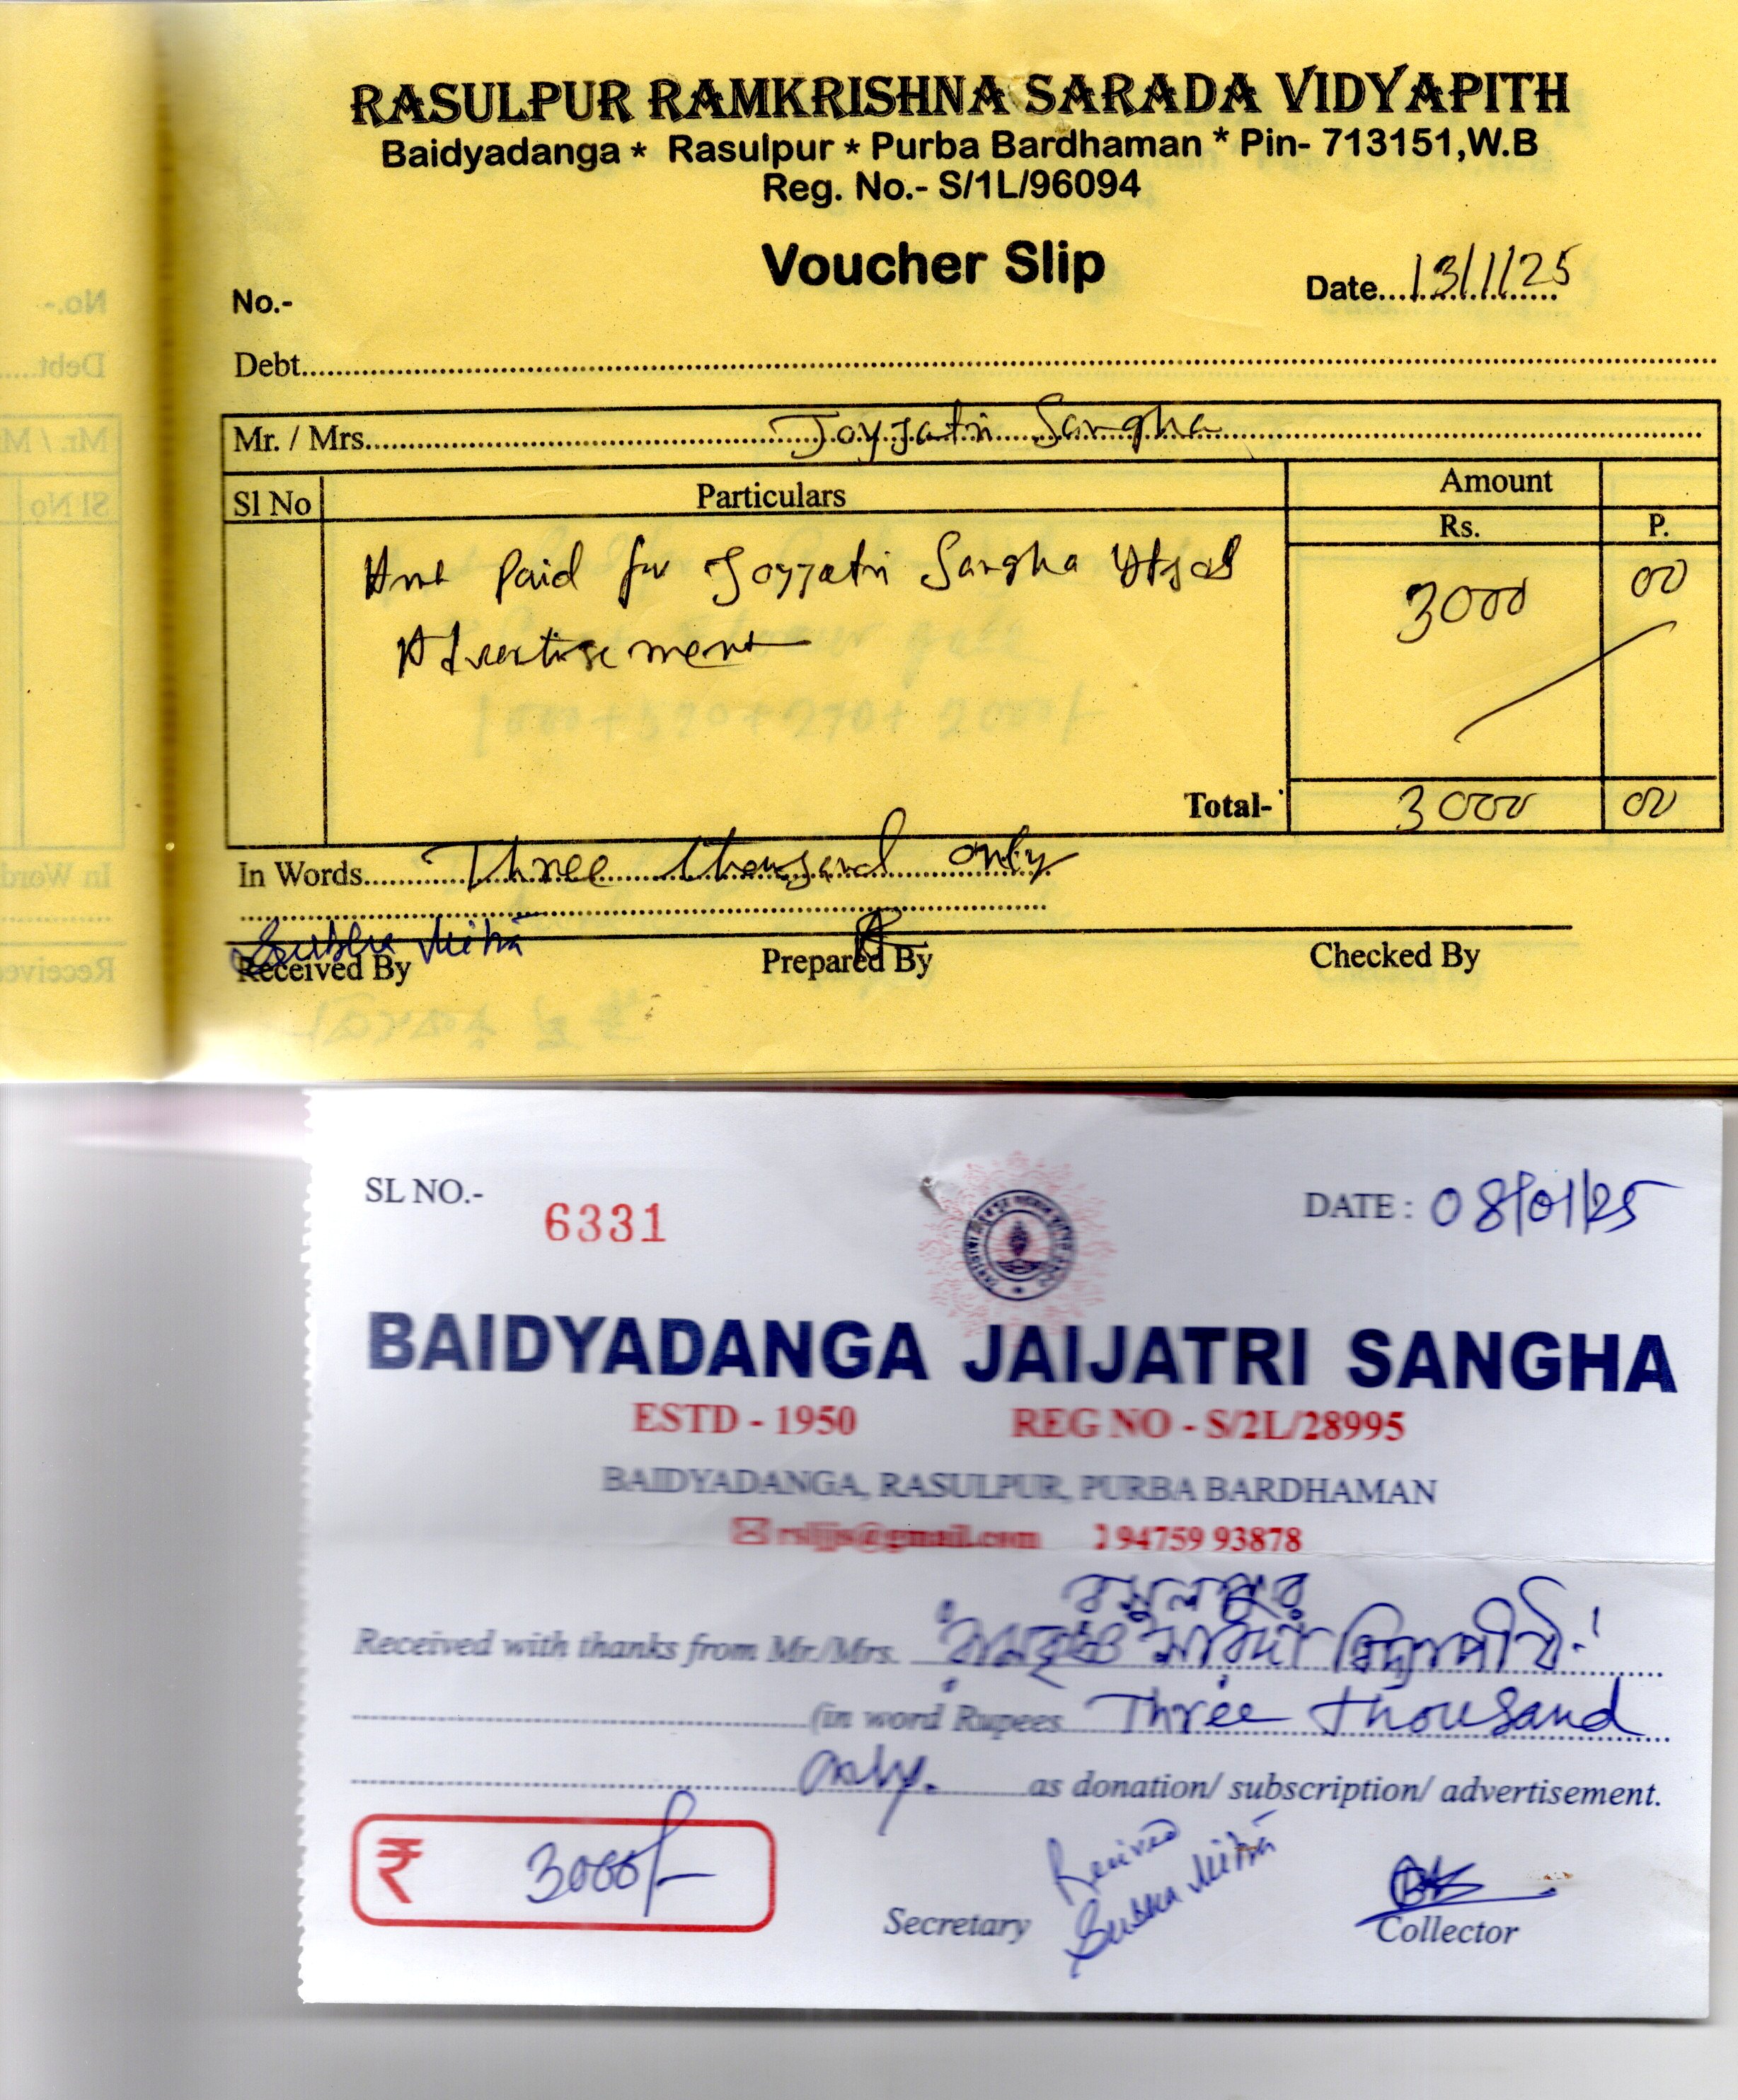 RASULPUR RAMKRISHNA SARADA VIDYAPITH
Baidyadanga * Rasulpur * Purba Bardhaman * Pin- 713151,W.B
Reg. No.- S/1L/96094
Voucher Slip
No.-
Date....13/1/25
Debt
Mr. / Mrs. Joyjatri Sangha
Sl No Particulars Amount
Rs. P.
Amt Paid for Joyjatri Sangha Utsab 3000 00
Advertisement
Total- 3000 00
In Words Three thousand only
Subha Mitra
Received By Prepared By Checked By
SL NO.- 6331 DATE : 08/01/25
BAIDYADANGA JAIJATRI SANGHA
ESTD - 1950 REG NO - S/2L/28995
BAIDYADANGA, RASULPUR, PURBA BARDHAMAN
rsljjs@gmail.com 94759 93878
রসুলপুর
Received with thanks from Mr./Mrs. রামকৃষ্ণ সারদা বিদ্যাপীঠ
(in word Rupees Three thousand
only. as donation/ subscription/ advertisement.
₹ 3000/-
Recived
Subha Mitra
Secretary Collector